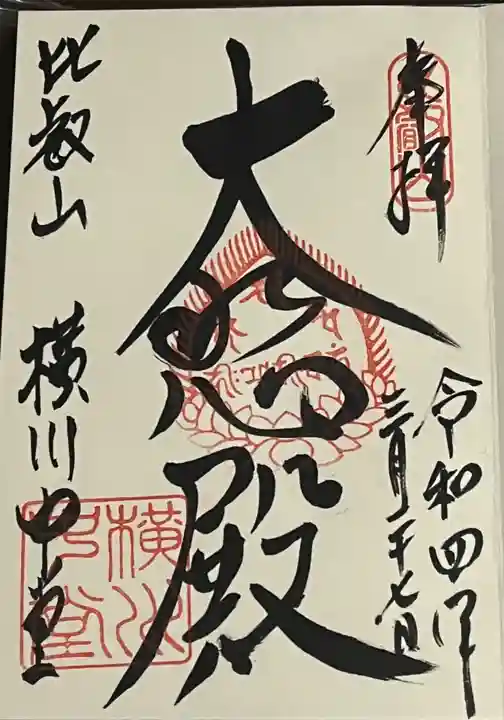 奉拝
令和四年
二月二十七日
大悲殿
比叡山 横川中堂
横川
中堂